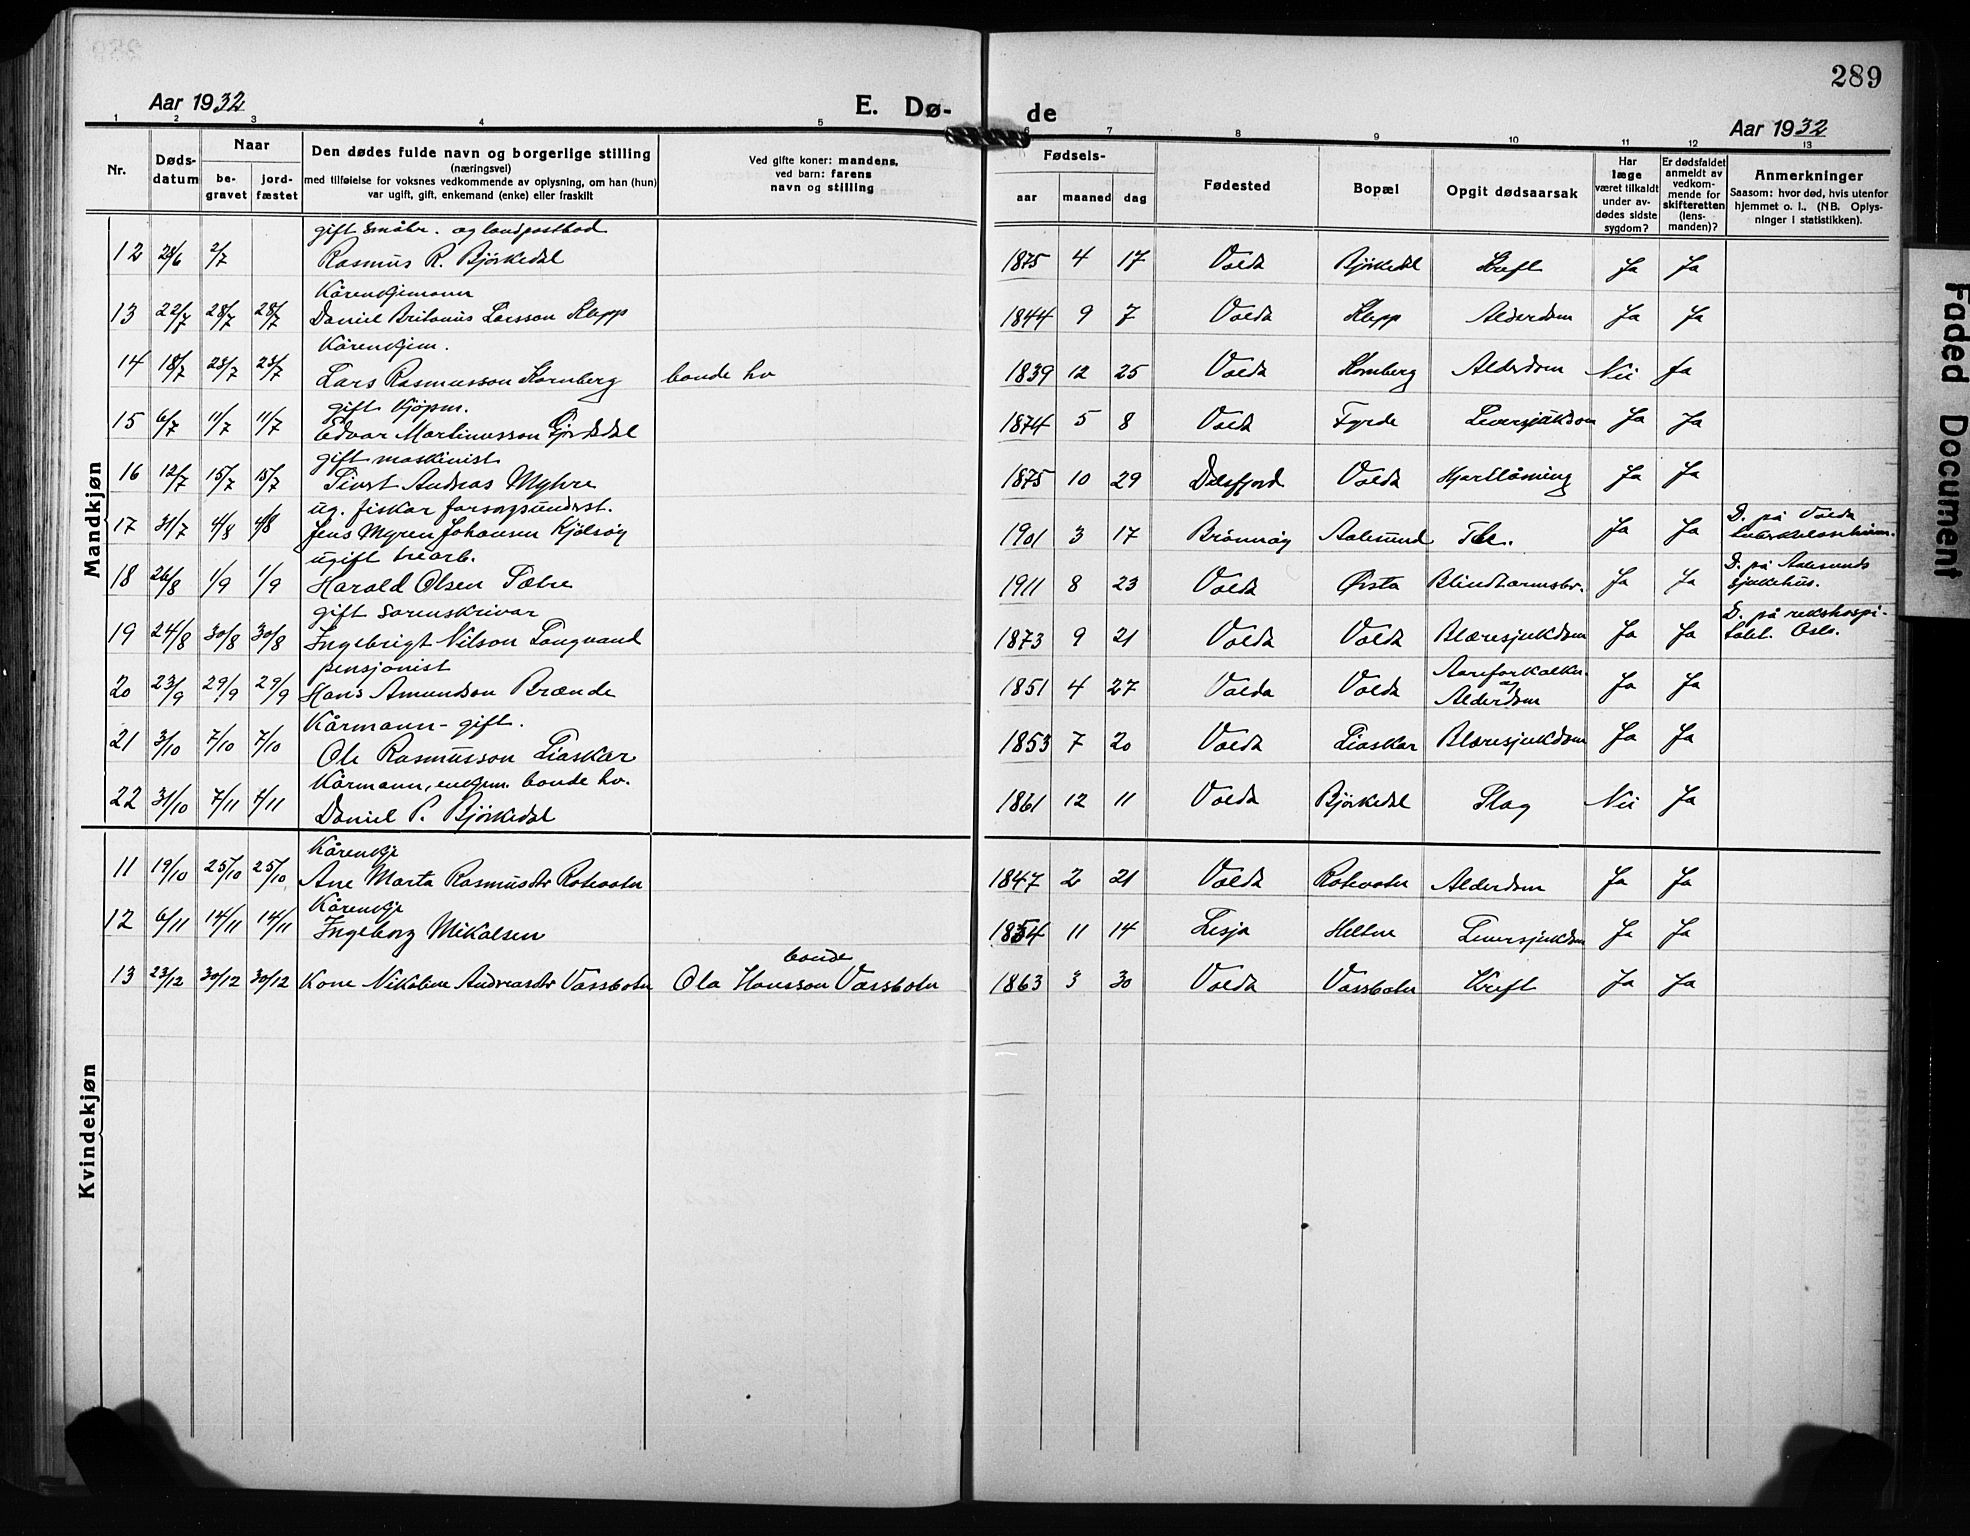 289
Aar 1932
E. Dø-
de
Aar 1932
1 2 3 4 5 6 7 8 9 10 11 12 13
Nr.
Døds-
datum
Naar
be-
gravet
jord-
fæstet
Den dødes fulde navn og borgerlige stilling
(næringsvei)
med tilføielse for voksnes vedkommende av oplysning, om han (hun)
var ugift, gift, enkemand (enke) eller fraskilt
Ved gifte koner: mandens,
ved barn: farens
navn og stilling
Fødsels-
aar
maaned
dag
Fødested
Bopæl
Opgit dødsaarsak
Har
læge
været tilkaldt
under av-
dødes sidste
sygdom?
Er dødsfaldet
anmeldt av
vedkom-
mende for
skifteretten
(lens-
manden)?
Anmerkninger
Saasom: hvor død, hvis utenfor
hjemmet o. l., (NB. Oplys-
ninger i statistikken).
Mandkjøn
gift småbr. og landpostbod
12 28/6 2/7 Rasmus R. Bjørkedal 1875 4 17 Volda Bjørkedal Kreft Ja Ja
Kårenkjemann
13 22/7 28/7 28/7 Daniel Britanus Larsson Klepp 1844 9 7 Volda Klepp Alderdom Ja Ja
Kårenkjem.
14 18/7 23/7 23/7 Lars Rasmusson Hornberg bonde hv 1839 12 25 Volda Hornberg Alderdom Nei Ja
gift kjøpm.
15 6/7 11/7 11/7 Edvar Martinusson Fjordsdal 1874 5 8 Volda Fyrde Leversjukdom Ja Ja
gift maskinist
16 12/7 15/7 15/7 Sivert Andreas Myhre 1875 10 29 Dalsfjord Volda Hjartlåming Ja Ja
ug. fiskar forsorgsunderst.
17 31/7 4/8 4/8 Jens Myren Johansen Kjølsøy 1901 3 17 Brønnøy Aalesund Tbc. Ja Ja D. på Volda
tuberkuloseheim.
ugift trearb.
18 26/8 1/9 1/9 Harald Olsen Sætre 1911 8 23 Volda Ørsta Blindtarmsbr. Ja Ja D. på Aalesunds
sjukehus.
gift sorenskrivar
19 24/8 30/8 30/8 Ingebrigt Nilson Langvand 1873 9 21 Volda Volda Blæresjukdom Ja Ja D. på rikshospi-
talet Oslo.
pensjonist
20 23/9 29/9 29/9 Hans Amundson Brænde 1851 4 27 Volda Volda Aareforkalkn.
og
Alderdom Ja Ja
Kårmann - gift.
21 3/10 7/10 7/10 Ole Rasmusson Liaskar 1853 7 20 Volda Liaskar Blæresjukdom Ja Ja
Kårmann, enkjem. bonde hv.
22 31/10 7/11 7/11 Daniel P. Bjørkedal 1861 12 11 Volda Bjørkedal Slag Nei Ja
Kvindekjøn
Kårenkje
11 19/10 25/10 25/10 Ane Marta Rasmusdtr Rotevatn 1847 2 21 Volda Rotevatn Alderdom Ja Ja
Kårenkje
12 6/11 14/11 14/11 Ingeborg Mikalsen 1854 11 14 Lesja Heltne Leversjukdom Ja Ja
bonde
13 23/12 30/12 30/12 Kone Nikoline Andreasdtr Vassbotn Ola Hansson Vassbotn 1863 3 30 Volda Vassbotn Kreft Ja Ja
Faded Document